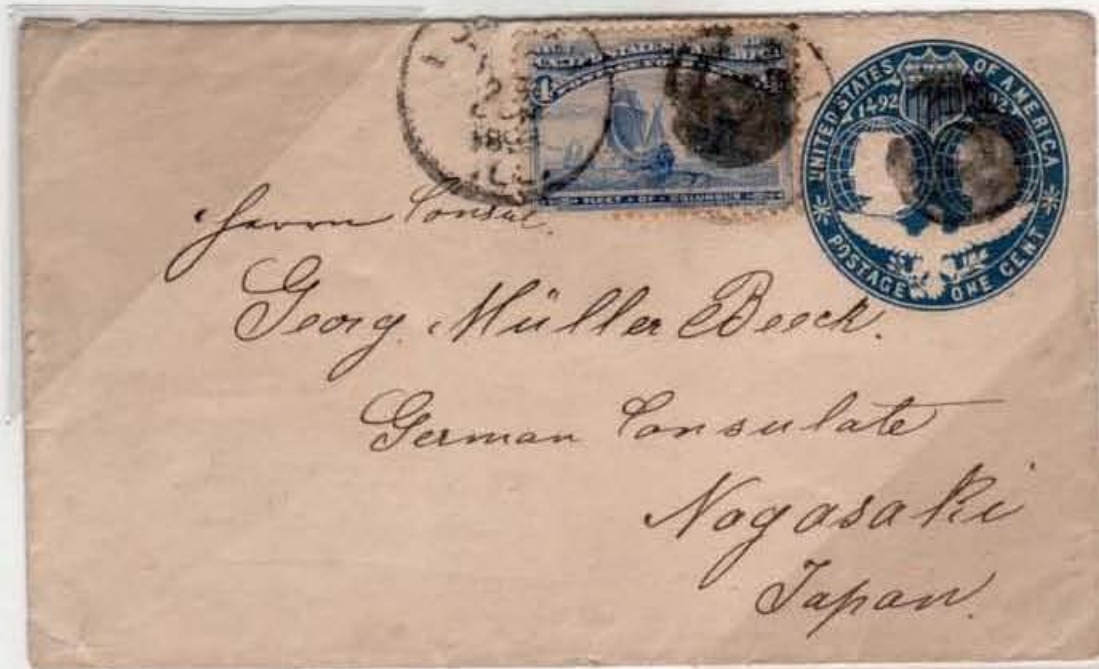 UNITED STATES OF AMERICA
1492
POSTAGE ONE CENT
FLEET OF COLUMBUS
ILL.
Herrn Consul.
Georg. Müller Beeck.
German Consulate
Nagasaki
Japan.